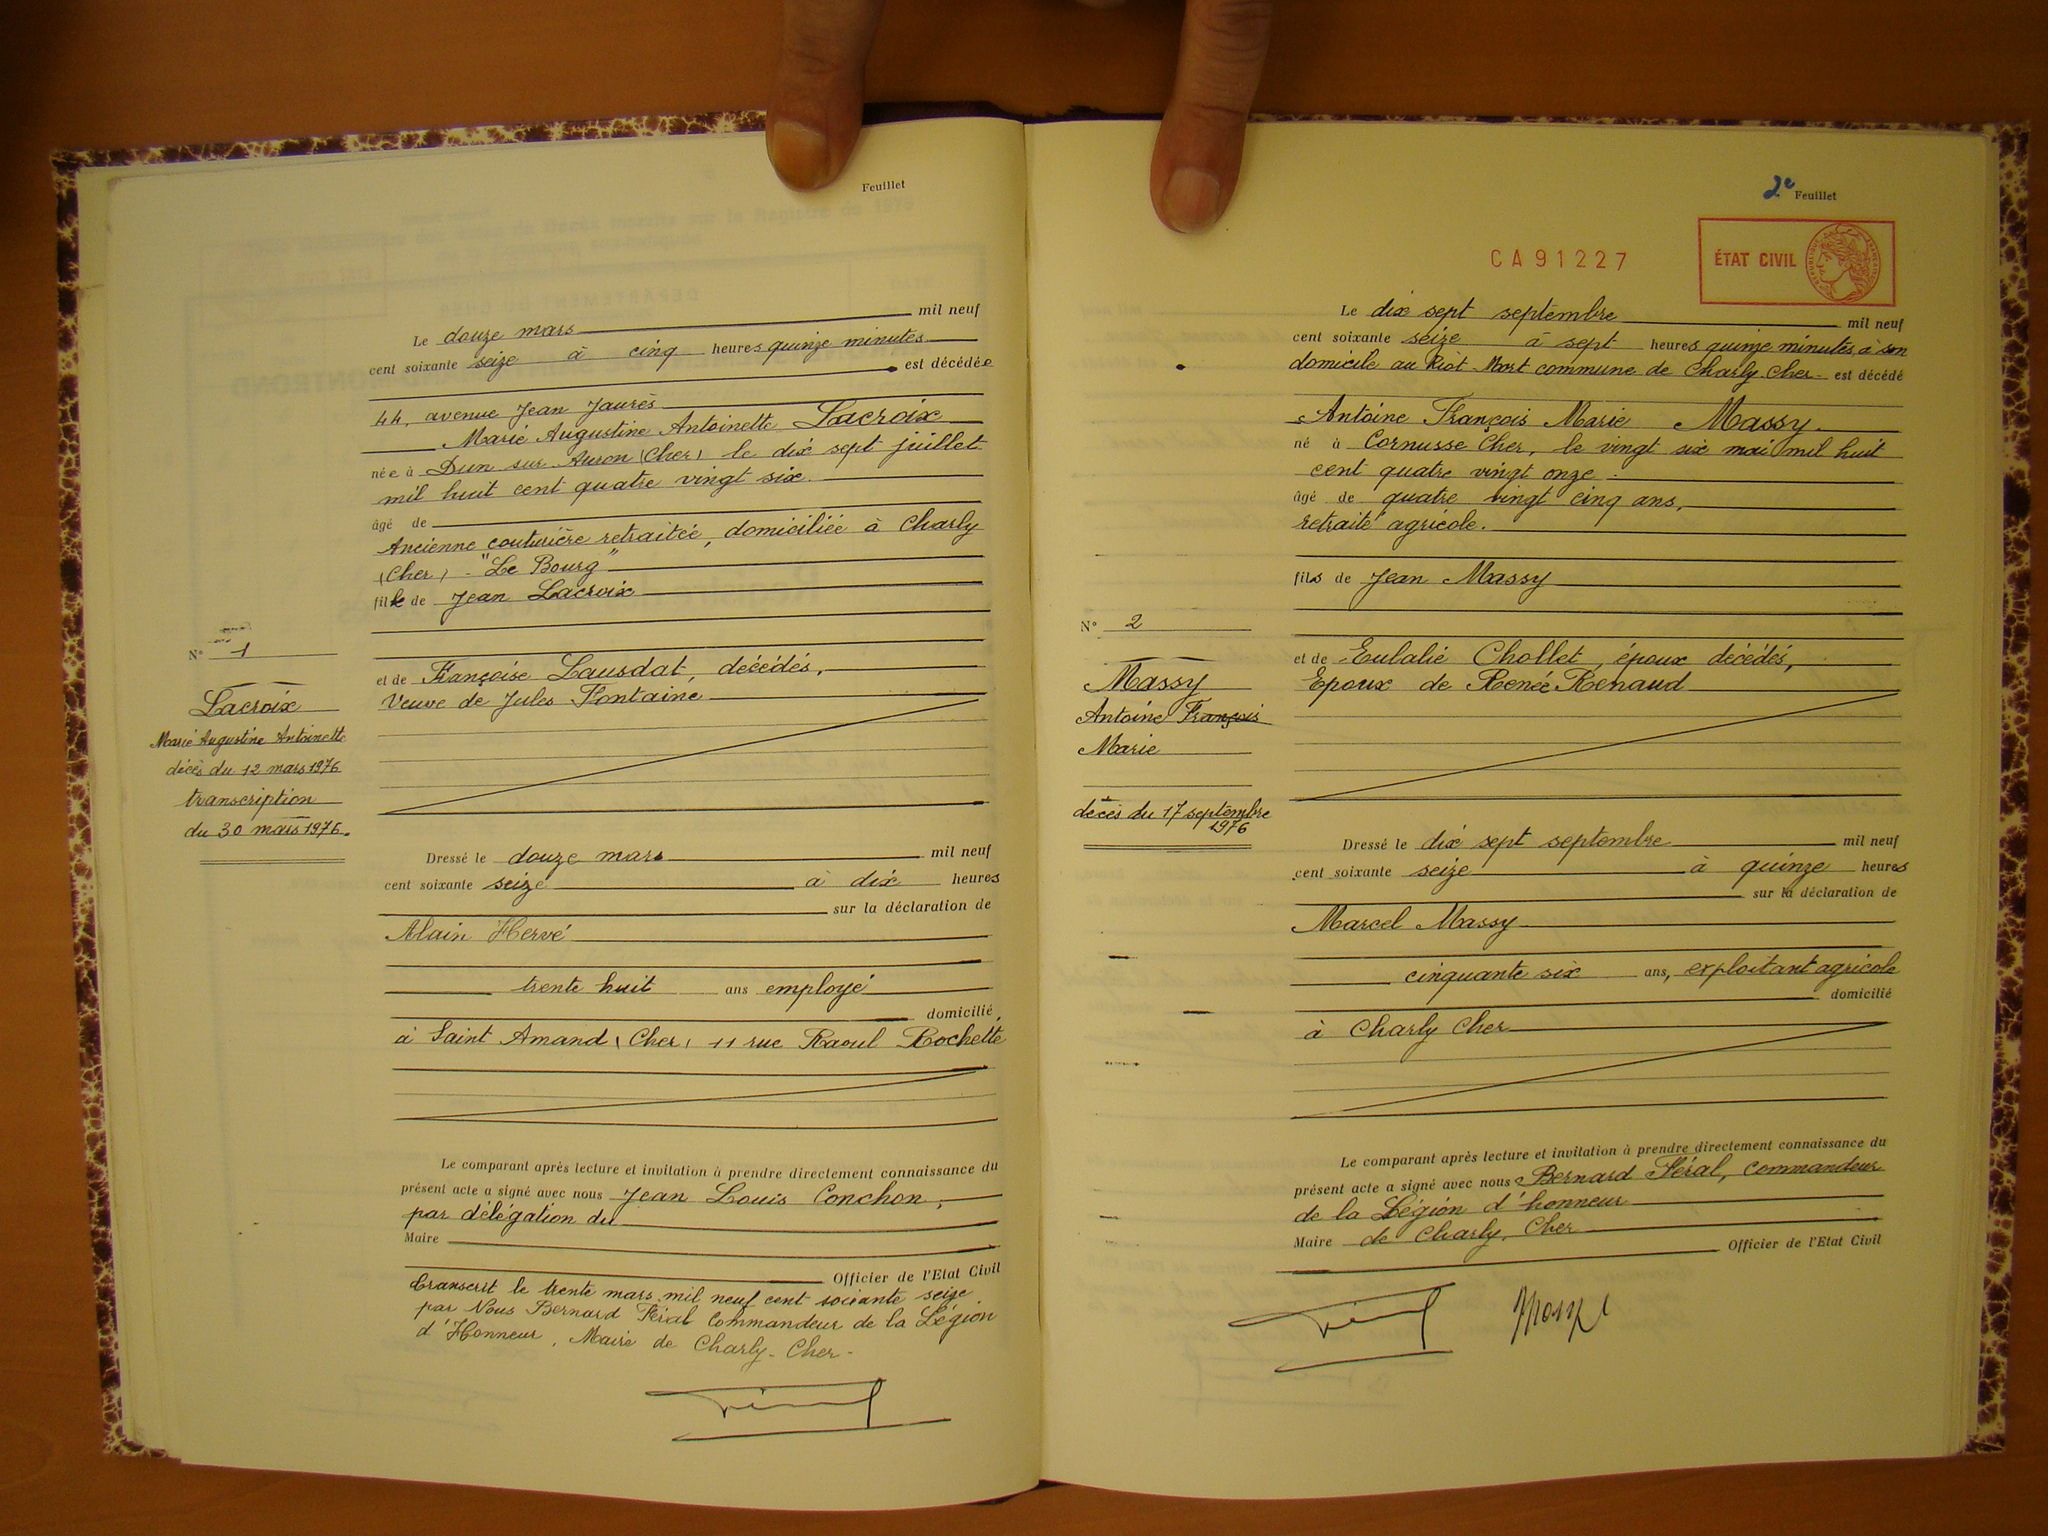 Feuillet
Le douze mars mil neuf
cent soixante seize à cinq heures quinze minutes
est décédée
44, avenue Jean Jaurès
Marie Augustine Antoinette Lacroix
née à Dun sur Auron (Cher) le dix sept juillet
mil huit cent quatre vingt six.
âgé de
Ancienne couturière retraitée, domiciliée à Charly
(Cher) - "Le Bourg"
fille de Jean Lacroix
N° 1
et de Françoise Lausdat, décédés.
Veuve de Jules Fontaine
Lacroix
Marie Augustine Antoinette
décès du 12 mars 1976
transcription
du 30 mars 1976.
Dressé le douze mars mil neuf
cent soixante seize à dix heures
sur la déclaration de
Alain Hervé
trente huit ans employé
domicilié
à Saint Amand (Cher) 11 rue Raoul Rochette
Le comparant après lecture et invitation à prendre directement connaissance du
présent acte a signé avec nous Jean Louis Conchon,
par délégation du
Maire
Officier de l'Etat Civil
Transcrit le trente mars mil neuf cent soixante seize
par Nous Bernard Féral Commandeur de la Légion
d'Honneur, Maire de Charly - Cher -
2e Feuillet
CA91227
ÉTAT CIVIL
Le dix sept septembre mil neuf
cent soixante seize à sept heures quinze minutes à son
domicile au Riot-Mort commune de Charly Cher - est décédé
Antoine François Marie Massy
né à Cornusse Cher, le vingt six mai mil huit
cent quatre vingt onze -
âgé de quatre vingt cinq ans,
retraité agricole.
fils de Jean Massy
N° 2
et de Eulalie Chollet, époux décédés,
Epoux de Renée Renaud
Massy
Antoine François
Marie
décès du 17 septembre
1976
Dressé le dix sept septembre mil neuf
cent soixante seize à quinze heures
sur la déclaration de
Marcel Massy
cinquante six ans, exploitant agricole
domicilié
à Charly Cher
Le comparant après lecture et invitation à prendre directement connaissance du
présent acte a signé avec nous Bernard Féral, Commandeur
de la Légion d'honneur
Maire de Charly, Cher
Officier de l'Etat Civil